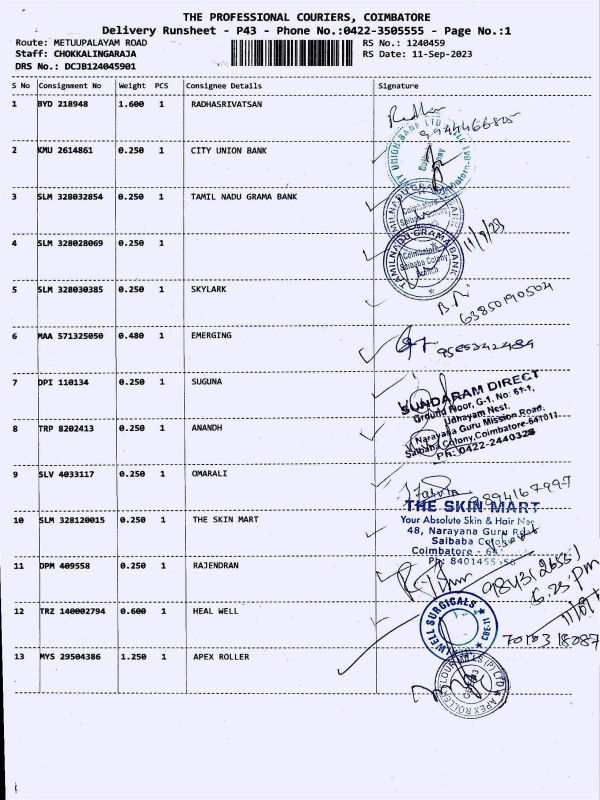 THE PROFESSIONAL COURIERS, COIMBATORE
Delivery Runsheet - P43 - Phone No.:0422-3505555 - Page No.:1
Route: METUUPALAYAM ROAD
RS No.: 1240459
Staff: CHOKKALINGARAJA
RS Date: 11-Sep-2023
DRS No.: DCJB124045901
S No Consignment No Weight PCS Consignee Details Signature
1 BYD 218948 1.600 1 RADHASRIVATSAN
Radha
2 KMU 2614861 0.250 1 CITY UNION BANK
3 SLM 328032854 0.250 1 TAMIL NADU GRAMA BANK
4 SLM 328028069 0.250 1
TAMILNADU GRAMA BANK
Saibaba Colony
11/9/23
5 SLM 328030385 0.250 1 SKYLARK
63850190504
6 MAA 571325050 0.480 1 EMERGING
7 DPI 110134 0.250 1 SUGUNA
SUNDARAM DIRECT
Ground Floor, G-1, No: 61-1,
Udhayam Nest,
8 TRP 8202413 0.250 1 ANANDH
Narayana Guru Mission Road,
Saibaba Colony,Coimbatore-641011.
Ph: 0422-2440328
9 SLV 4033117 0.250 1 OMARALI
9894167997
THE SKIN MART
10 SLM 328120015 0.250 1 THE SKIN MART
Your Absolute Skin & Hair
48, Narayana Guru Road
Saibaba Colony
Coimbatore -
11 DPM 409558 0.250 1 RAJENDRAN
Ph: 8401455
6.23 PM
12 TRZ 140002794 0.600 1 HEAL WELL
WELL SURGICALS
CBE-11
13 MYS 29504386 1.250 1 APEX ROLLER
APEX ROLLER FLOUR MILLS (P) LTD